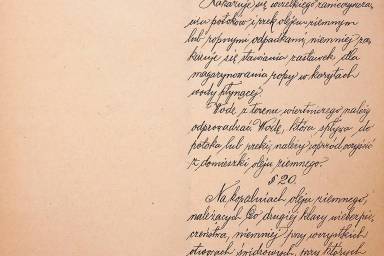 Zakazuje się wszelkiego zanieczyszcza-
nia potoków i rzek olejem ziemnym
lub ropnymi odpadkami, niemniej za-
kazuje się stawiania zastawek dla
magazynowania ropy w korytach
wody płynącej.
Wodę z terenu wiertniczego należy
odprowadzać. Wodę, która spływa do
potoka lub rzeki, należy wprzód oczyścić
z domieszki oleju ziemnego.
§ 20.
Na kopalniach oleju ziemnego,
należących do drugiej klasy niebezpie-
czeństwa, niemniej przy wszystkich
otworach świdrowych, przy których